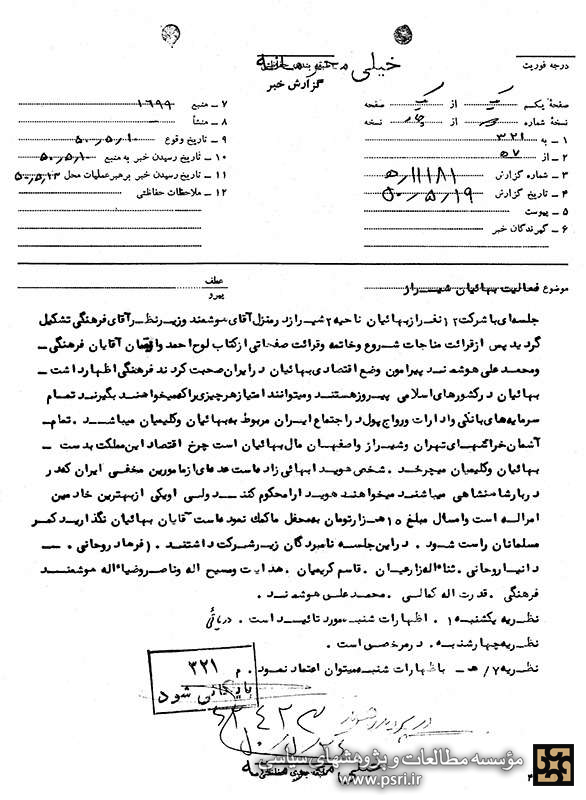 خیلی محرمانه
گزارش خبر
درجه فوریت
صفحهٔ یکم از یک صفحه
نسخهٔ شماره از نسخه
۱ ـ به ۳۲۱
۲ ـ از ۵۷
۳ ـ شماره گزارش ۱۱۱۸۱/ه
۴ ـ تاریخ گزارش ۵۰/۵/۱۹
۵ ـ پیوست
۶ ـ گیرندگان خبر
۷ ـ منبع ۱۶۹۹
۸ ـ منشأ
۹ ـ تاریخ وقوع ۵۰/۵/۱۰
۱۰ ـ تاریخ رسیدن خبر به منبع ۵۰/۵/۱۰
۱۱ ـ تاریخ رسیدن خبر برهبرعملیات محل ۵۰/۵/۱۳
۱۲ ـ ملاحظات حفاظتی
موضوع فعالیت بهائیان شیراز
عطف
پیرو
جلسه‌ای با شرکت ۱۲ نفر از بهائیان ناحیه ۲ شیراز در منزل آقای هوشمند و زیر نظر آقای فرهنگی تشکیل
گردید پس از قرائت مناجات شروع و خاتمه وقرائت صفحاتی از کتاب لوح احمد و آقایان فرهنگی ـ
ومحمد علی هوشمند پیرامون وضع اقتصادی بهائیان در ایران صحبت کردند فرهنگی اظهار داشت ـ
بهائیان در کشورهای اسلامی پیروز هستند و میتوانند امتیاز هر چیزی را که میخواهند بگیرند تمام
سرمایه‌های بانکی و ادارات و رواج پول در اجتماع ایران مربوط به بهائیان و کلیمیان میباشد . تمام ـ
آسمان خراشهای تهران و شیراز و اصفهان مال بهائیان است چرخ اقتصاد این مملکت بدست ـ
بهائیان و کلیمیان میچرخد . شخص هویدا بهائی زاده است عده‌ای از مامورین مخفی ایران که در
دربار شاهنشاهی میباشند میخواهند هویدا را محکوم کنند ولی او یکی از بهترین خادمین
امراله است و امسال مبلغ ۱۵ هزار تومان به محفل ما کمک نموده است آقایان بهائیان نگذارید کمر
مسلمانان راست شود . در این جلسه نامبردگان زیر شرکت داشتند . ( فرهاد روحانی . ـ
دانیا روحانی . ثناءاله زارعیان . قاسم کریمیان . هدایت و مسیح اله و ناصر و ضیاءاله هوشمند
فرهنگی . قدرت اله کمالی . محمد علی هوشمند .
نظریه یکشنبه ۱ . اظهارات شنبه مورد تائید است . دریائی
نظریه چهارشنبه . در مرخصی است .
نظریه ۷/ هـ ـ باظهارات شنبه میتوان اعتماد نمود . م
۳۲۱
بایگانی شود
خیلی محرمانه
مؤسسه مطالعات و پژوهشهای سیاسی
www.psri.ir